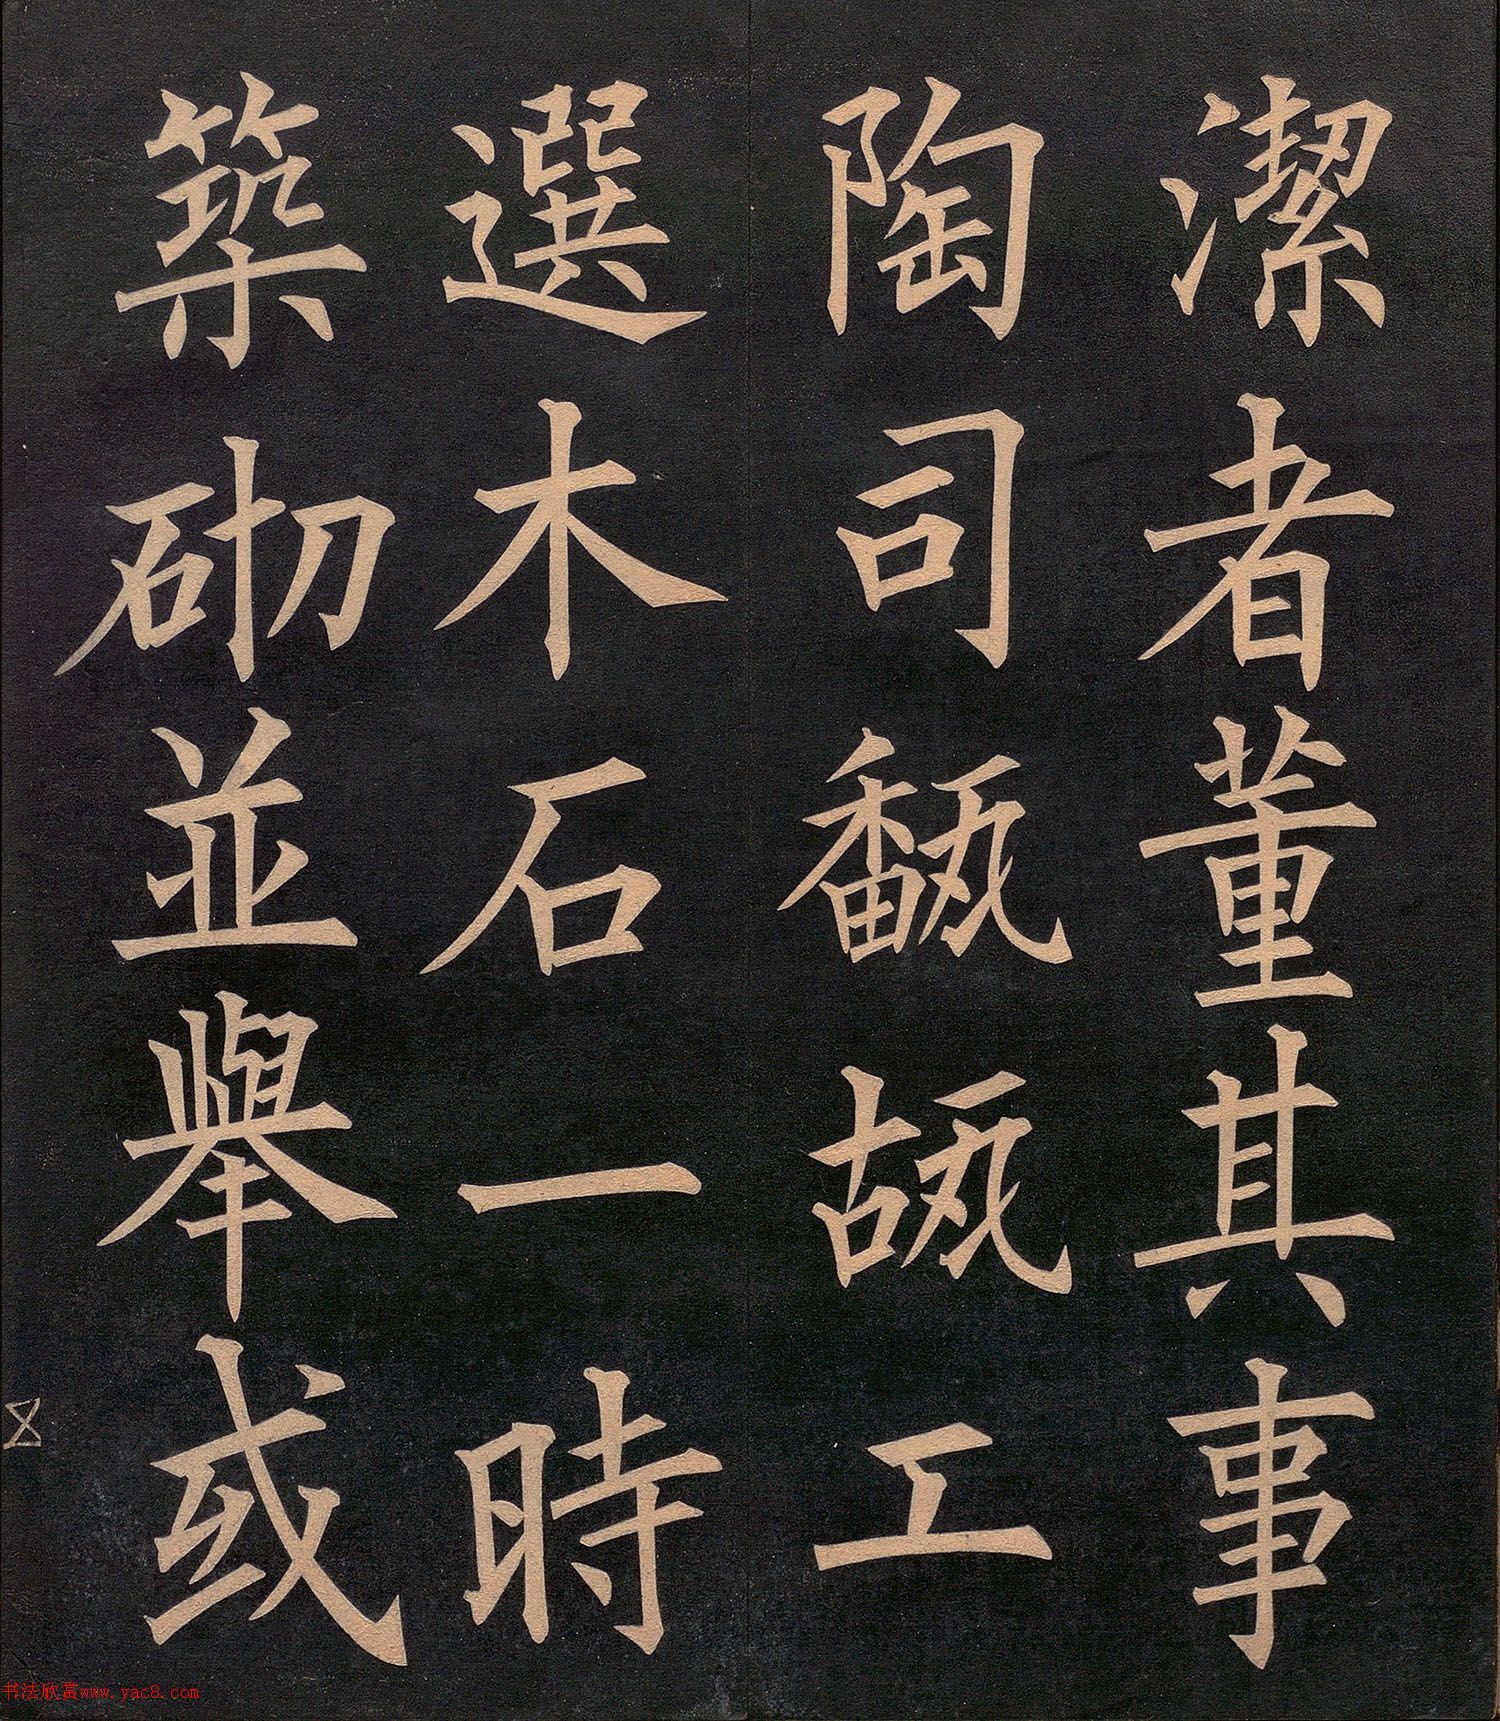 潔者董其事
陶司㽀㼋工
選木石一時
築砌並舉或
书法欣赏www.yac8.com